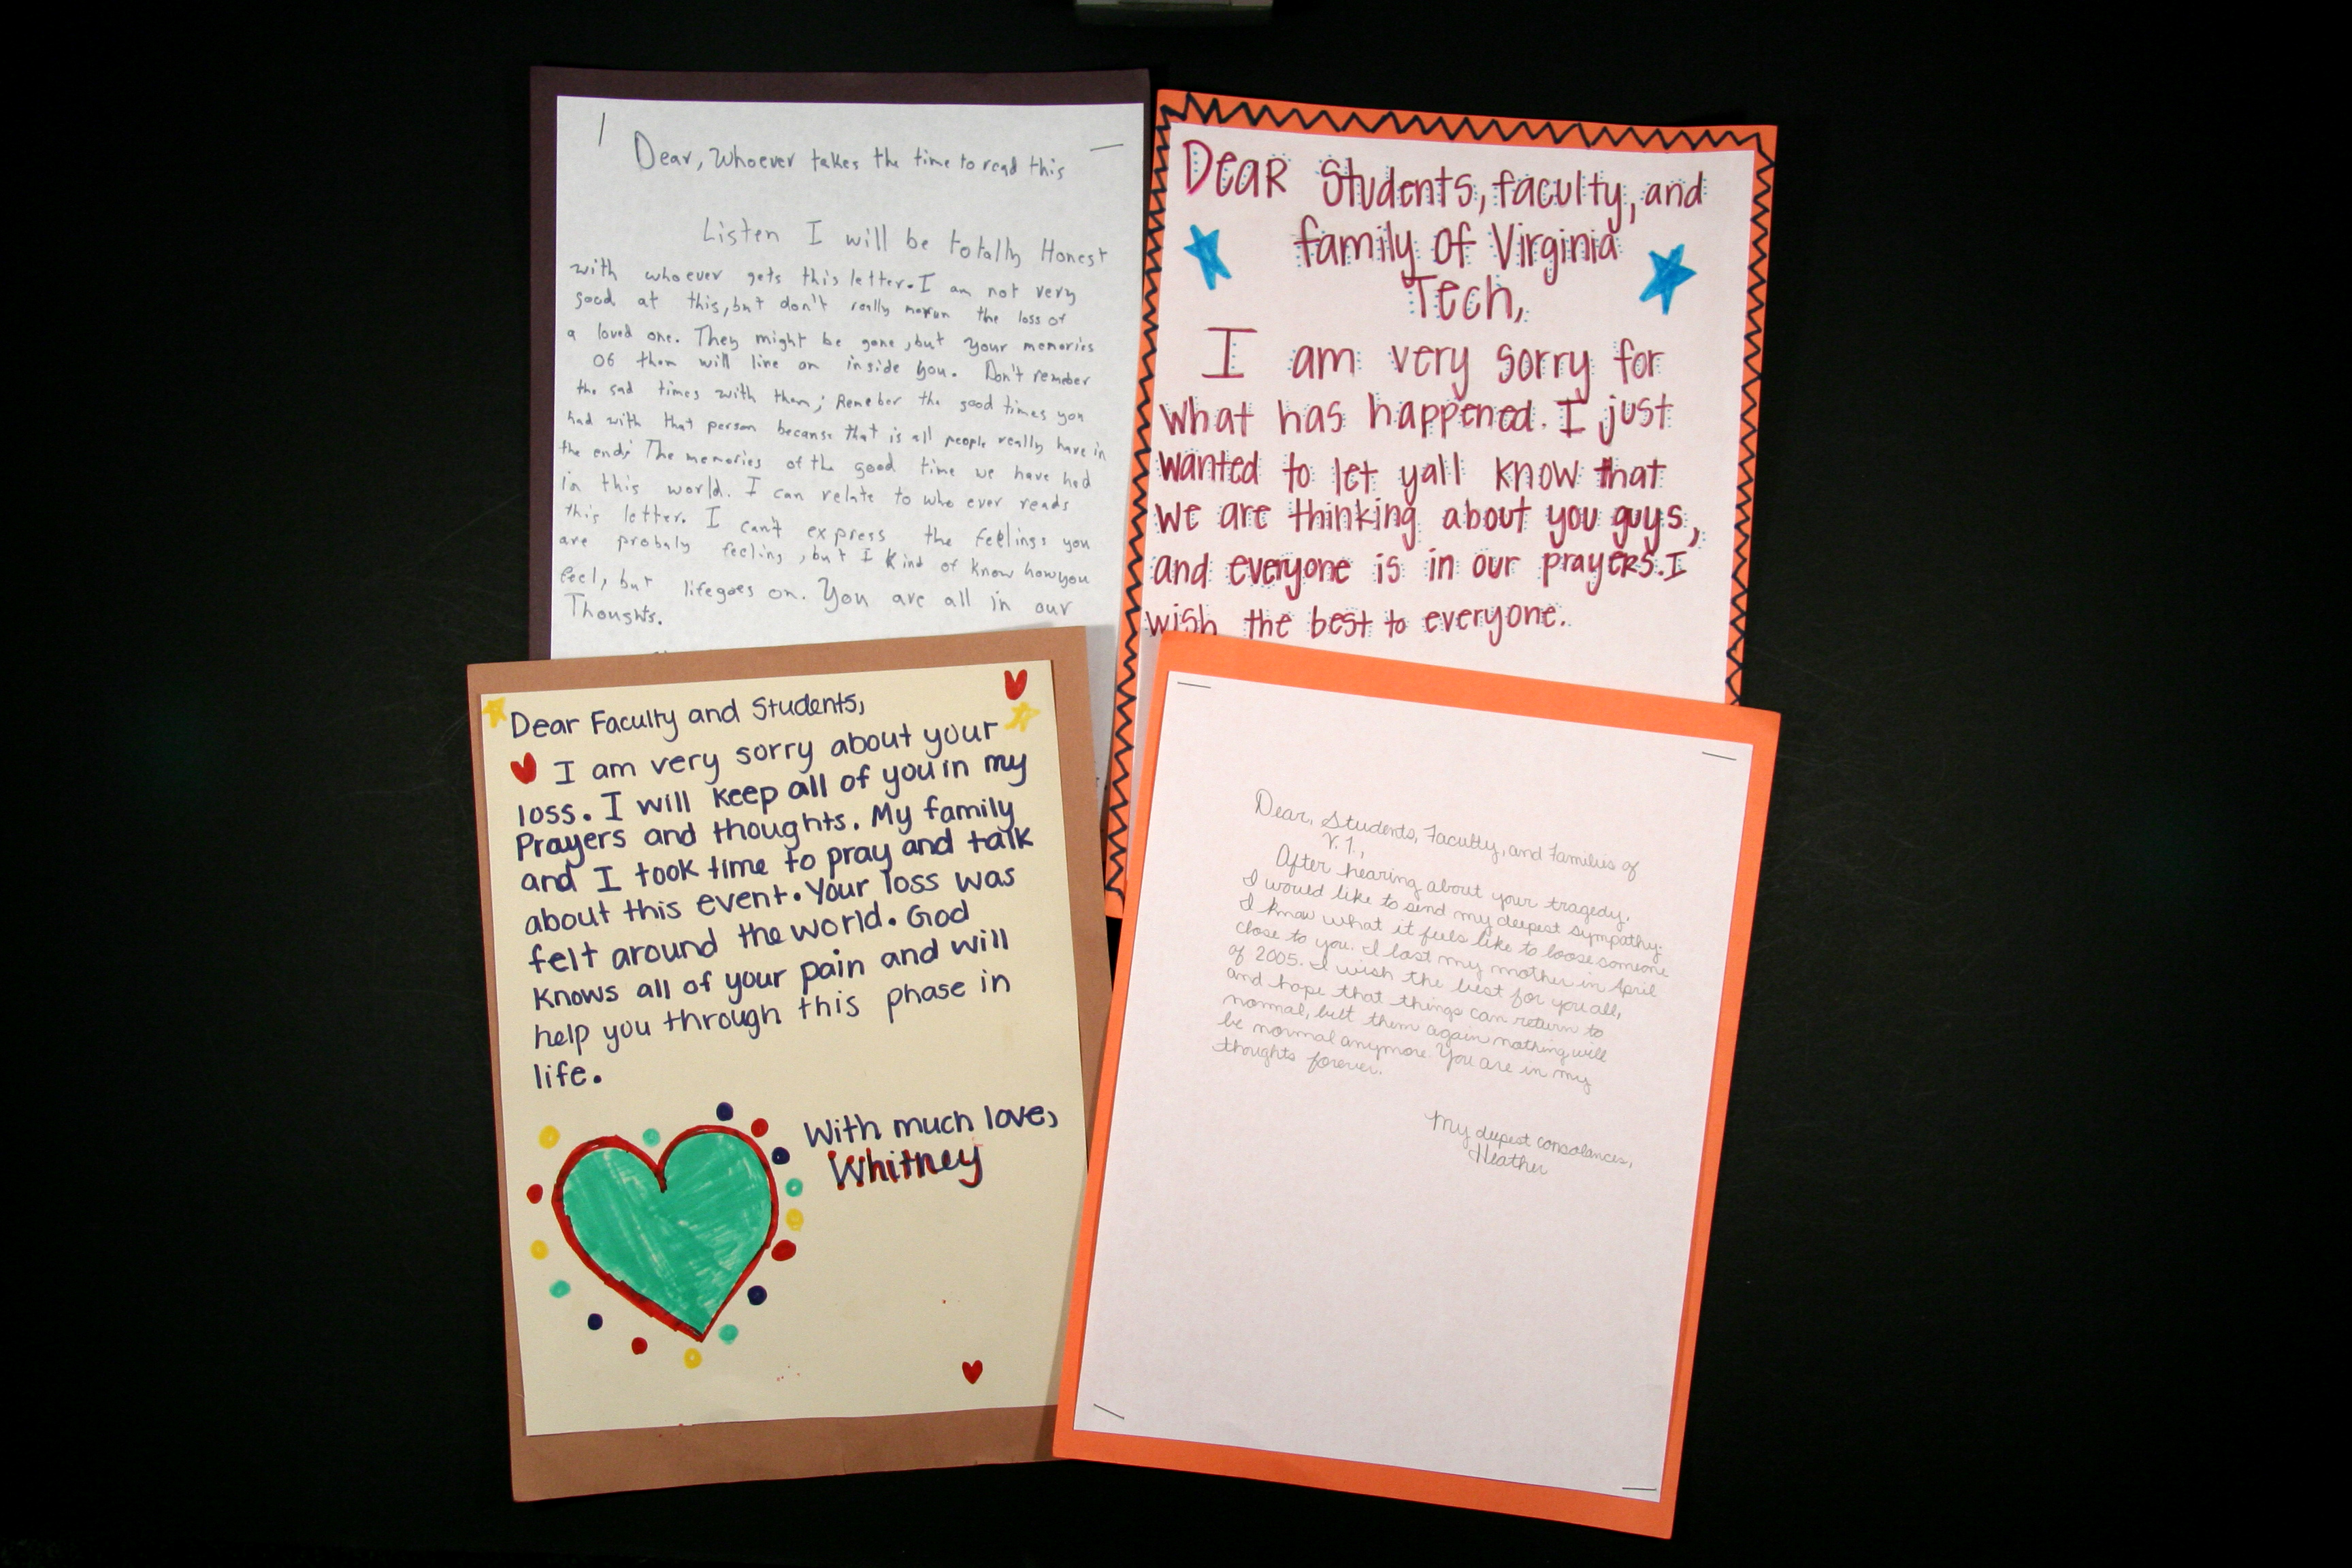 Dear, Whoever takes the time to read this
Listen I will be totally Honest
with whoever gets this letter. I am not very
good at this, but don't really the loss of
a loved one. They might be gone, but your memories
of them will live on inside you. Don't remeber
the sad times with them; Remeber the good times you
had with that person because that is all people really have in
the end; The memories of the good time we have had
in this world. I can relate to who ever reads
this letter. I can't express the feelings you
are probaly feeling, but I kind of know how you
feel, but life goes on. You are all in our
Thoughts.
Dear Students, faculty, and
family of Virginia
Tech,
I am very sorry for
what has happened. I just
wanted to let yall know that
we are thinking about you guys,
and everyone is in our prayers. I
wish the best to everyone.
Dear Faculty and Students,
I am very sorry about your
loss. I will keep all of you in my
Prayers and thoughts. My family
and I took time to pray and talk
about this event. Your loss was
felt around the world. God
knows all of your pain and will
help you through this phase in
life.
With much love,
Whitney
Dear, Students, Faculty, and Families of
V.T.,
After hearing about your tragedy,
I would like to send my deepest sympathy.
I know what it feels like to loose someone
close to you. I lost my mother in April
of 2005. I wish the best for you all,
and hope that things can return to
normal, but them again nothing will
be normal anymore. You are in my
thoughts forever.
My deepest consolances,
Heather